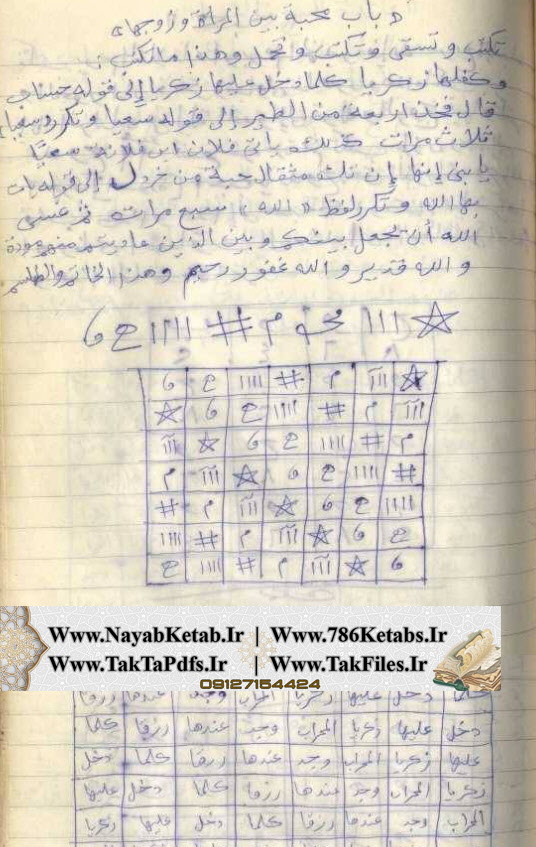 باب محبة بين المرأة وزوجها
تكتب وتسقى وتكتب وتحمل وهذا ما تكتب :
وكفلها زكريا كلما دخل عليها زكريا إلى قوله حساب
قال فخذ اربعة من الطير إلى قوله سعيا وتكرر سعيا
ثلاث مرات كذلك ياتى فلان ابن فلانة سعيًا
يا بنى إنها إن تك مثقال حبة من خردل إلى قوله يات
بها الله وتكرر لفظ «الله» سبع مرات ثم عسى
الله أن يجعل بينكم وبين الذين عاديتم منهم مودة
والله قدير والله غفور رحيم وهذا الخاتم والطلسم
☆ ااا م # اااا ح 6
☆ ااا م # اااا ح 6
ااا م # اااا ح 6 ☆
م # اااا ح 6 ☆ ااا
# اااا ح 6 ☆ ااا م
اااا ح 6 ☆ ااا م #
ح 6 ☆ ااا م # اااا
6 ☆ ااا م # اااا ح
Www.NayabKetab.Ir | Www.786Ketabs.Ir
Www.TakTaPdfs.Ir | Www.TakFiles.Ir
09127154424
كلما دخل عليها زكريا المحراب وجد عندها رزقا
دخل عليها زكريا المحراب وجد عندها رزقا كلما
عليها زكريا المحراب وجد عندها رزقا كلما دخل
زكريا المحراب وجد عندها رزقا كلما دخل عليها
المحراب وجد عندها رزقا كلما دخل عليها زكريا